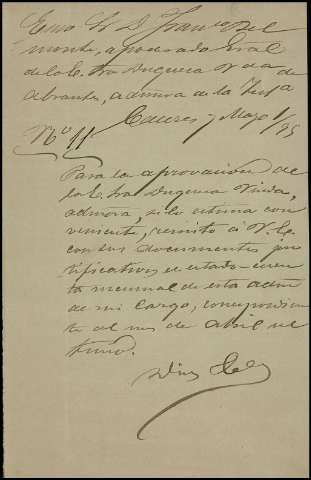 Exmo Sr D. Franco Bel
monte, apoderado Gral
de la E. Sra Duquesa Vda de
Abrantes, admora de la Testa
Caceres y Mayo 1/95
No 11
Para la aprovacion de
la E. Sra Duquesa Viuda,
admora, si lo estima con
veniente, remito á V. E.
con sus documentos jus
tificativos, el estado-cuen
ta mensual de esta admon
de mi cargo, correspondien
te al mes de Abril ul
timo.
Dios &a